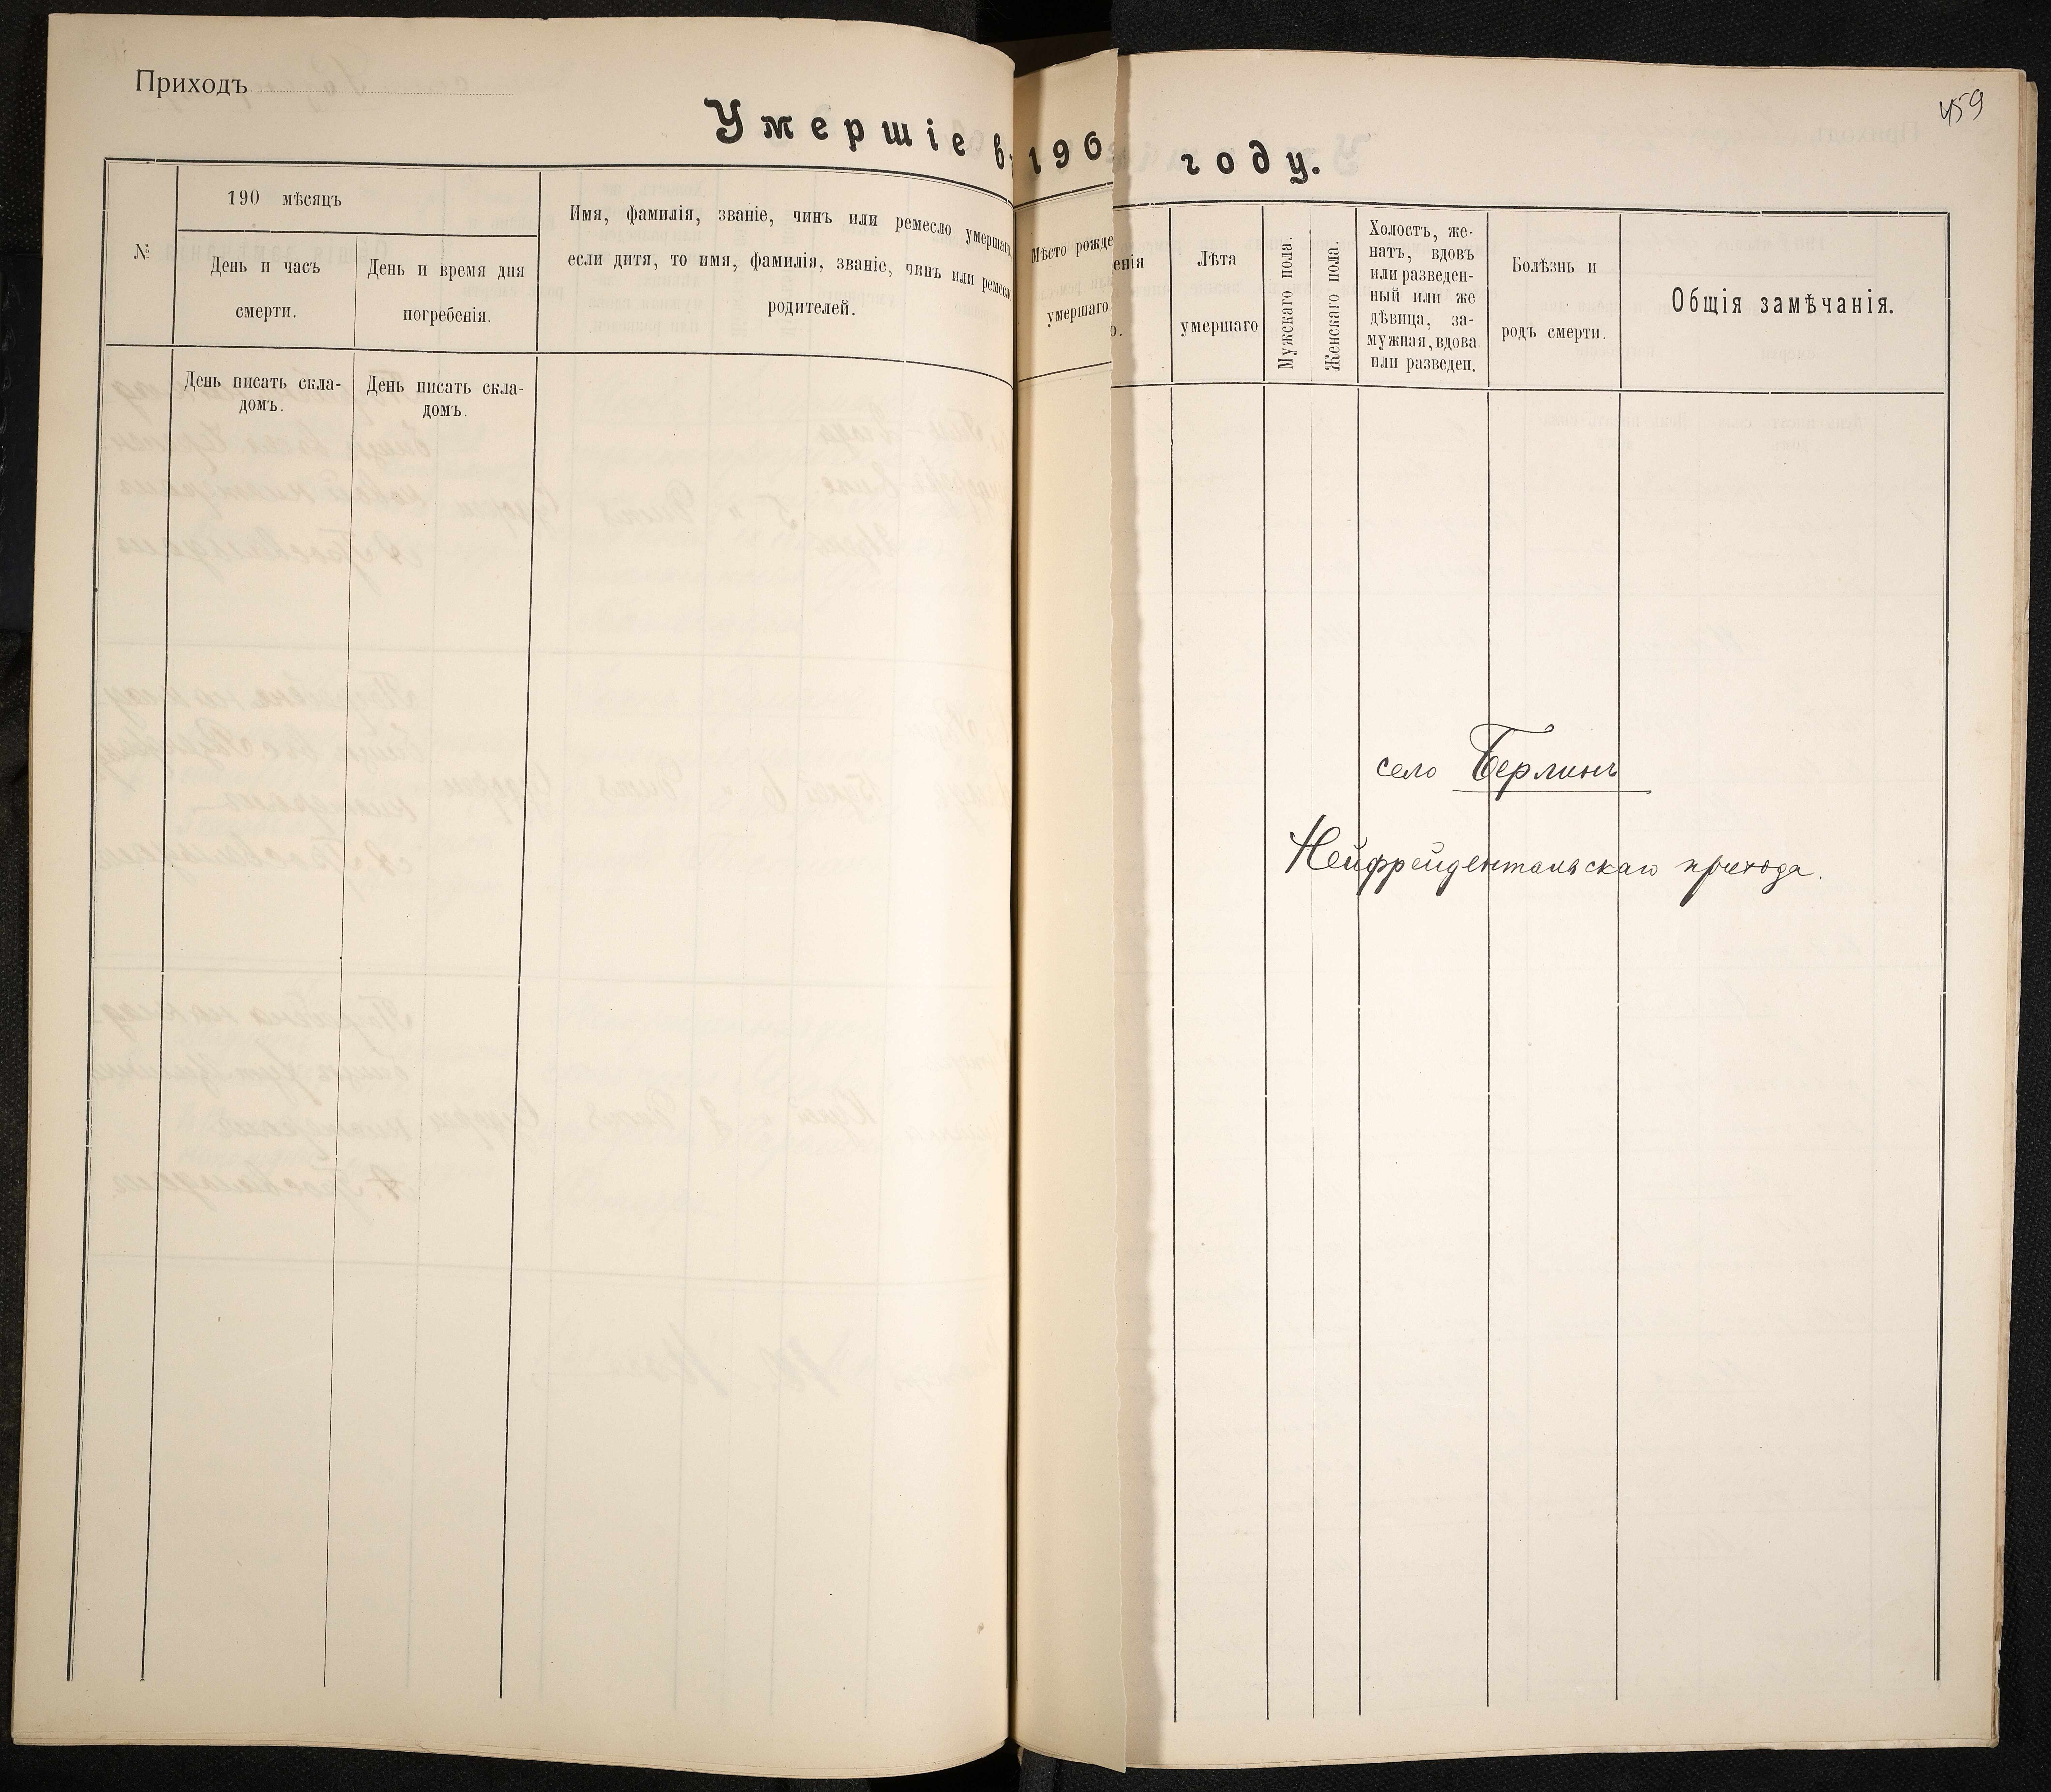 Приходъ
459
Умершіе въ 190 году.
№
190 мѣсяцъ
День и часъ
смерти.
День и время дня
погребенія.
Имя, фамилія, званіе, чинъ или ремесло умершаго,
если дитя, то имя, фамилія, званіе, чинъ или ремесло
родителей.
Мѣсто рожденія
умершаго.
Лѣта
умершаго
Мужскаго пола.
Женскаго пола.
Холостъ, же-
натъ, вдовъ
или разведен-
ный или же
дѣвица, за-
мужная, вдова
или разведен.
Болѣзнь и
родъ смерти.
Общія замѣчанія.
День писать скла-
домъ.
День писать скла-
домъ.
село Берлинъ
Нейфрейдентальскаго прихода.